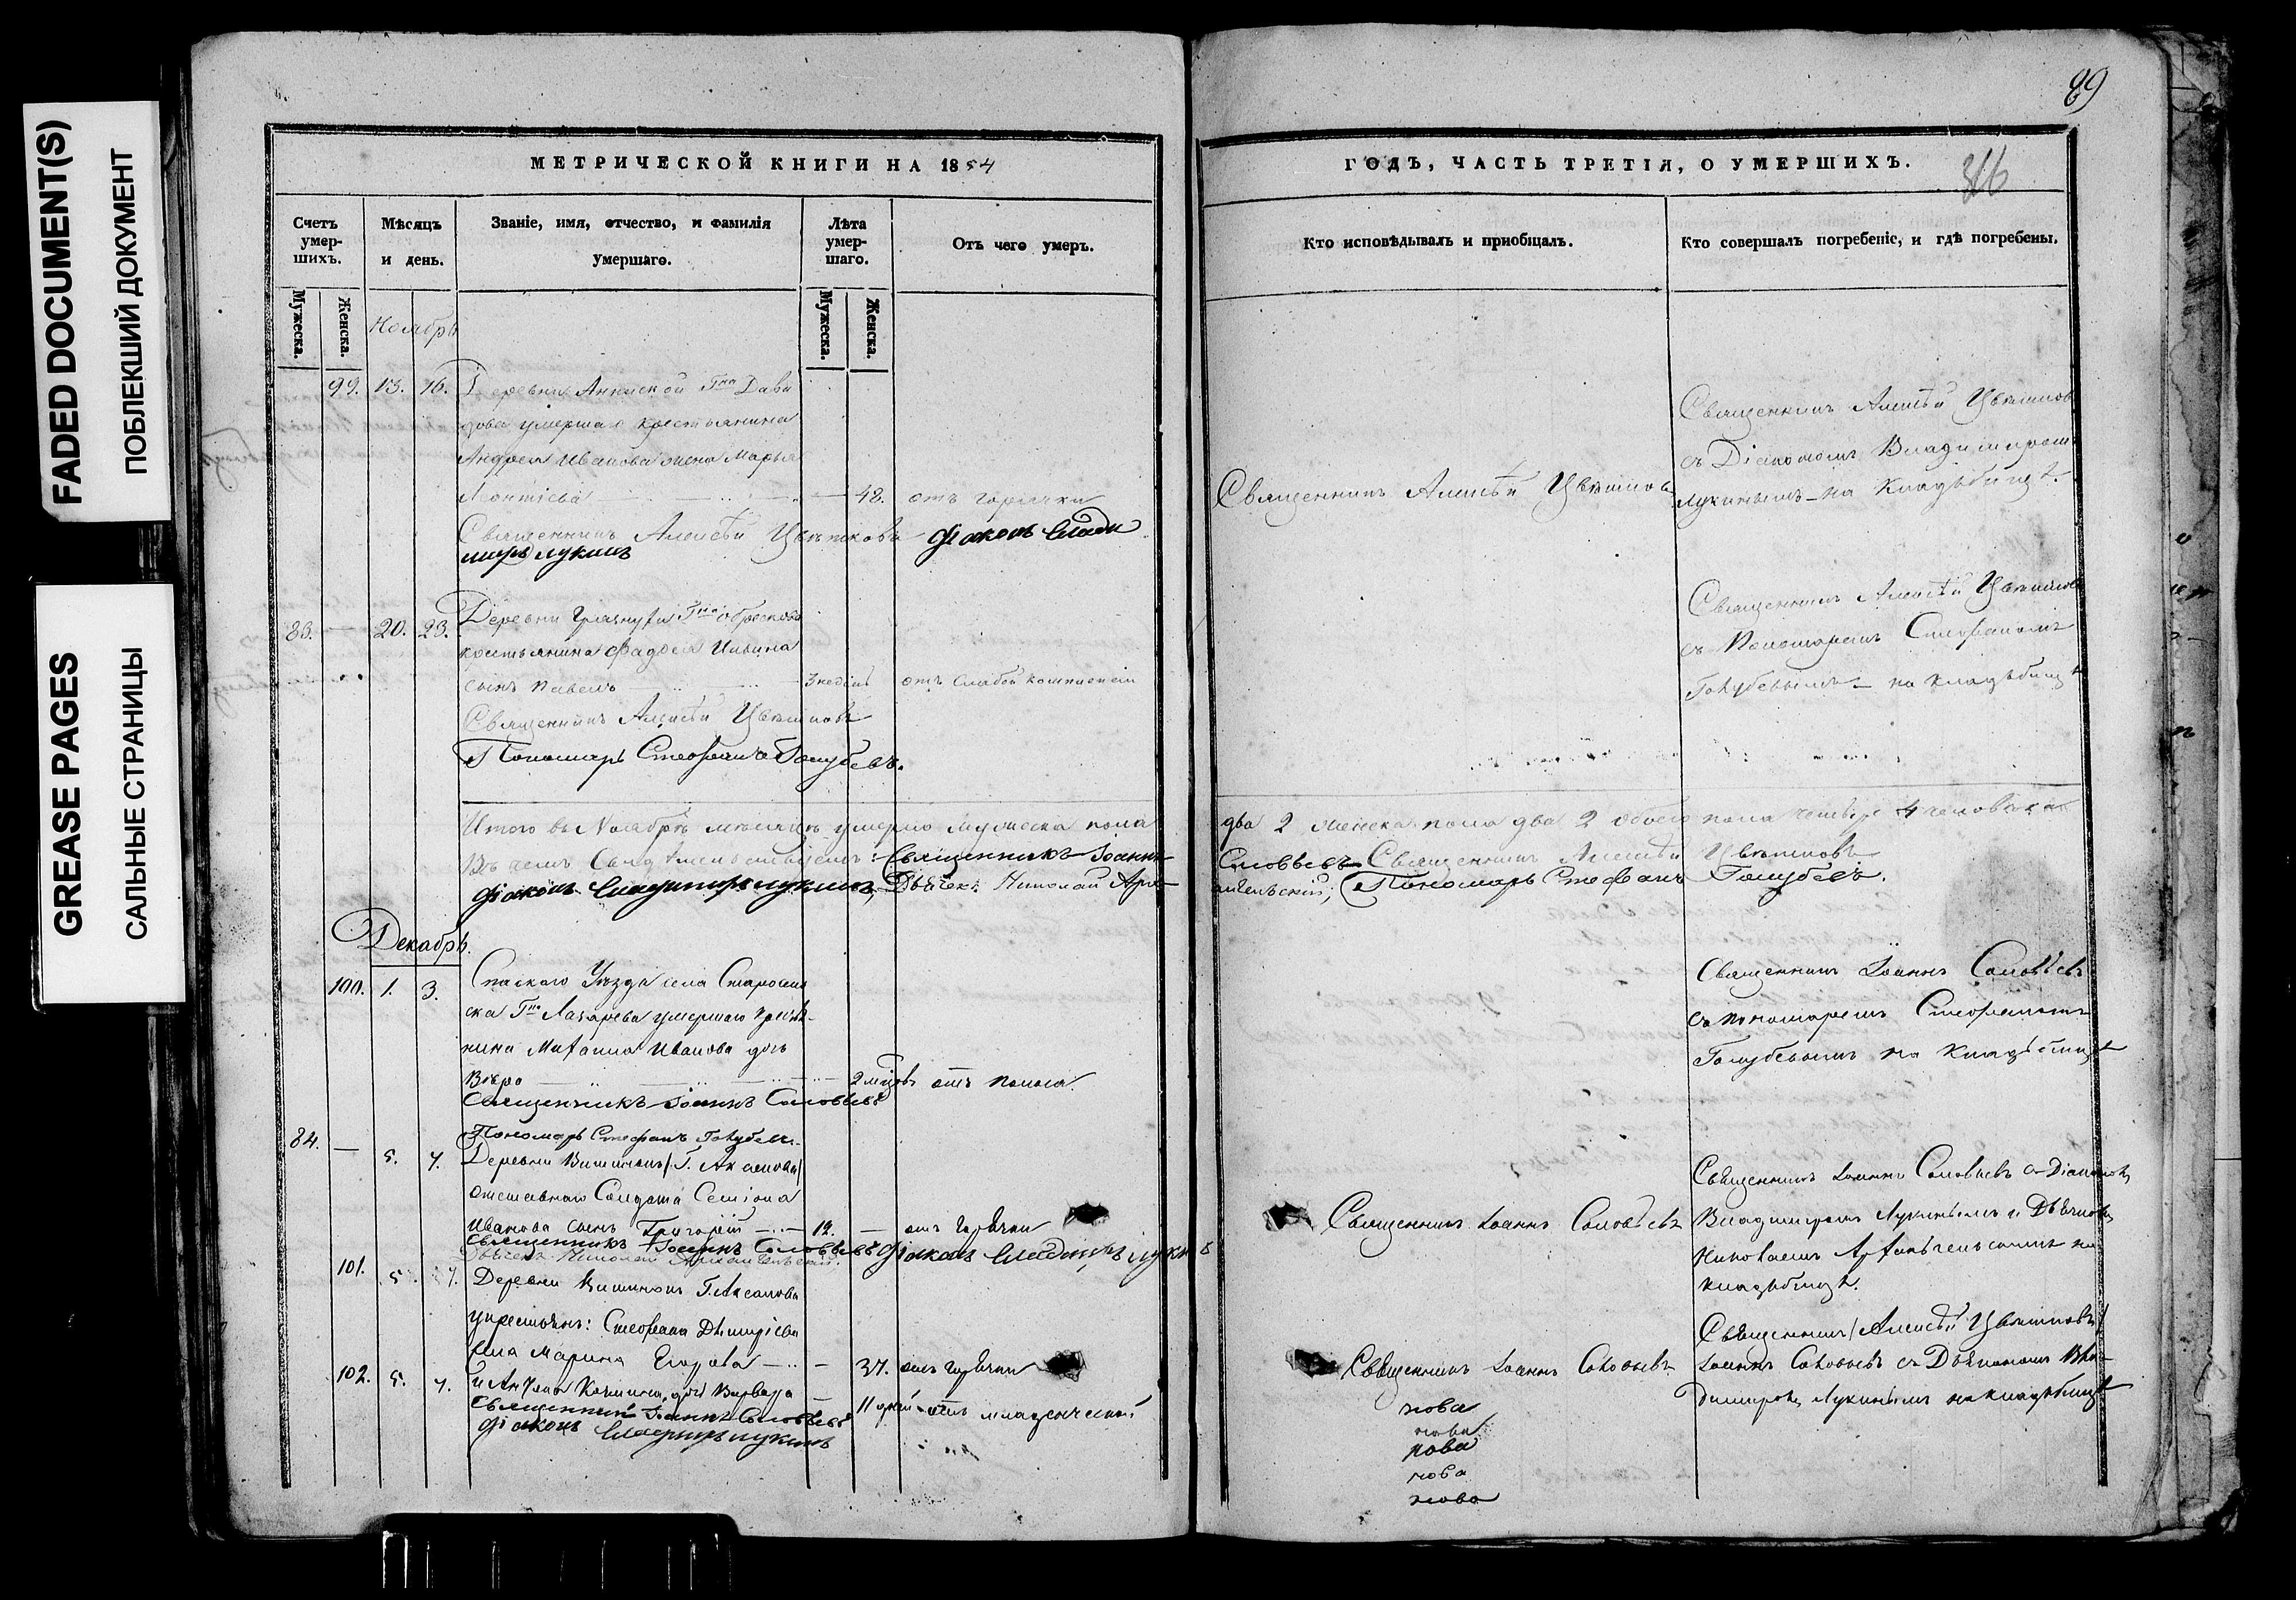 FADED DOCUMENT(S)
ПОБЛЕКШИЙ ДОКУМЕНТ
GREASE PAGES
САЛЬНЫЕ СТРАНИЦЫ
МЕТРИЧЕСКОЙ КНИГИ НА 1854
Счетъ умер-шихъ.
Мужеска.
Женска.
Мѣсяцъ и день.
Званіе, имя, отчество, и фамилія умершаго.
Лѣта умер-шаго.
Мужеска.
Женска.
Отъ чего умеръ.
Ноябрь
99. 13. 16. Деревни Г-на Дави
дова умершаго крестьянина
Андрея Иванова жена Марья
Леонтіева 48. отъ горячки
Священникъ Алексѣй Цвѣтковъ Діаконъ Влади
миръ Лукинъ
83. 20. 23. Деревни Г-на Обрескова
крестьянина Фадея Ильина
сынъ Павелъ 3 недѣль отъ слабой комплекціи
Священникъ Алексѣй Цвѣтковъ
Пономарь Стефанъ Голубевъ.
Итого въ Ноябрѣ мѣсяцѣ умерло мужеска пола
Въ чемъ свидѣтельствуемъ: Священникъ Іоаннъ
Діаконъ Владимиръ Лукинъ, Дьячекъ Николай Арх
Декабрь.
100. 1. 3. Спаскаго Уѣзда села
Г-на Лазарева умершаго крестья-
нина Иванова дочь
Вѣра 2 мѣсяцовъ отъ поноса.
Священникъ Іоаннъ Соловьевъ
Пономарь Стефанъ Голубевъ.
84. — 5. 7. Деревни
отставнаго Солдата Семіона
Иванова сынъ Григорій 12. — отъ горячки
Священникъ Іоаннъ Соловьевъ Діаконъ Владимиръ Лукинъ
Дьячекъ Николай Архангельскій.
101. 5. 7. Деревни
у крестьян: Стефана Дмитріева
жена Марина Егорова 37. отъ горячки
102. 5. 7. дочь Варвара 11 дней отъ младенческой
Священникъ Іоаннъ Соловьевъ
Діаконъ Владимиръ Лукинъ
89
ГОДЪ, ЧАСТЬ ТРЕТІЯ, О УМЕРШИХЪ.
Кто исповѣдывалъ и пріобщалъ.
Кто совершалъ погребеніе, и гдѣ погребены.
Священникъ Алексѣй Цвѣтковъ
Священникъ Алексѣй Цвѣтковъ
съ Діакономъ Владимиромъ
Лукинымъ на кладбищѣ.
Священникъ Алексѣй Цвѣтковъ
съ Пономаремъ Стефаномъ
Голубевымъ на кладбищѣ
два 2 женска пола два 2 обоего пола четыре 4 человѣка
Соловьевъ Священникъ Алексѣй Цвѣтковъ
ангельскій, Пономарь Стефанъ Голубевъ.
Священникъ Іоаннъ Соловьевъ
съ пономаремъ Стефаномъ
Голубевымъ на кладбищѣ
Священникъ Іоаннъ Соловьевъ
Священникъ Іоаннъ Соловьевъ съ Діакономъ
Владимиромъ Лукинымъ и Дьячкомъ
Николаемъ Архангельскимъ на
кладбищѣ.
Священникъ Іоаннъ Соловьевъ
Священникъ /Алексѣй Цвѣтковъ/
Іоаннъ Соловьевъ съ Діакономъ Вла-
димиромъ Лукинымъ на кладбищѣ